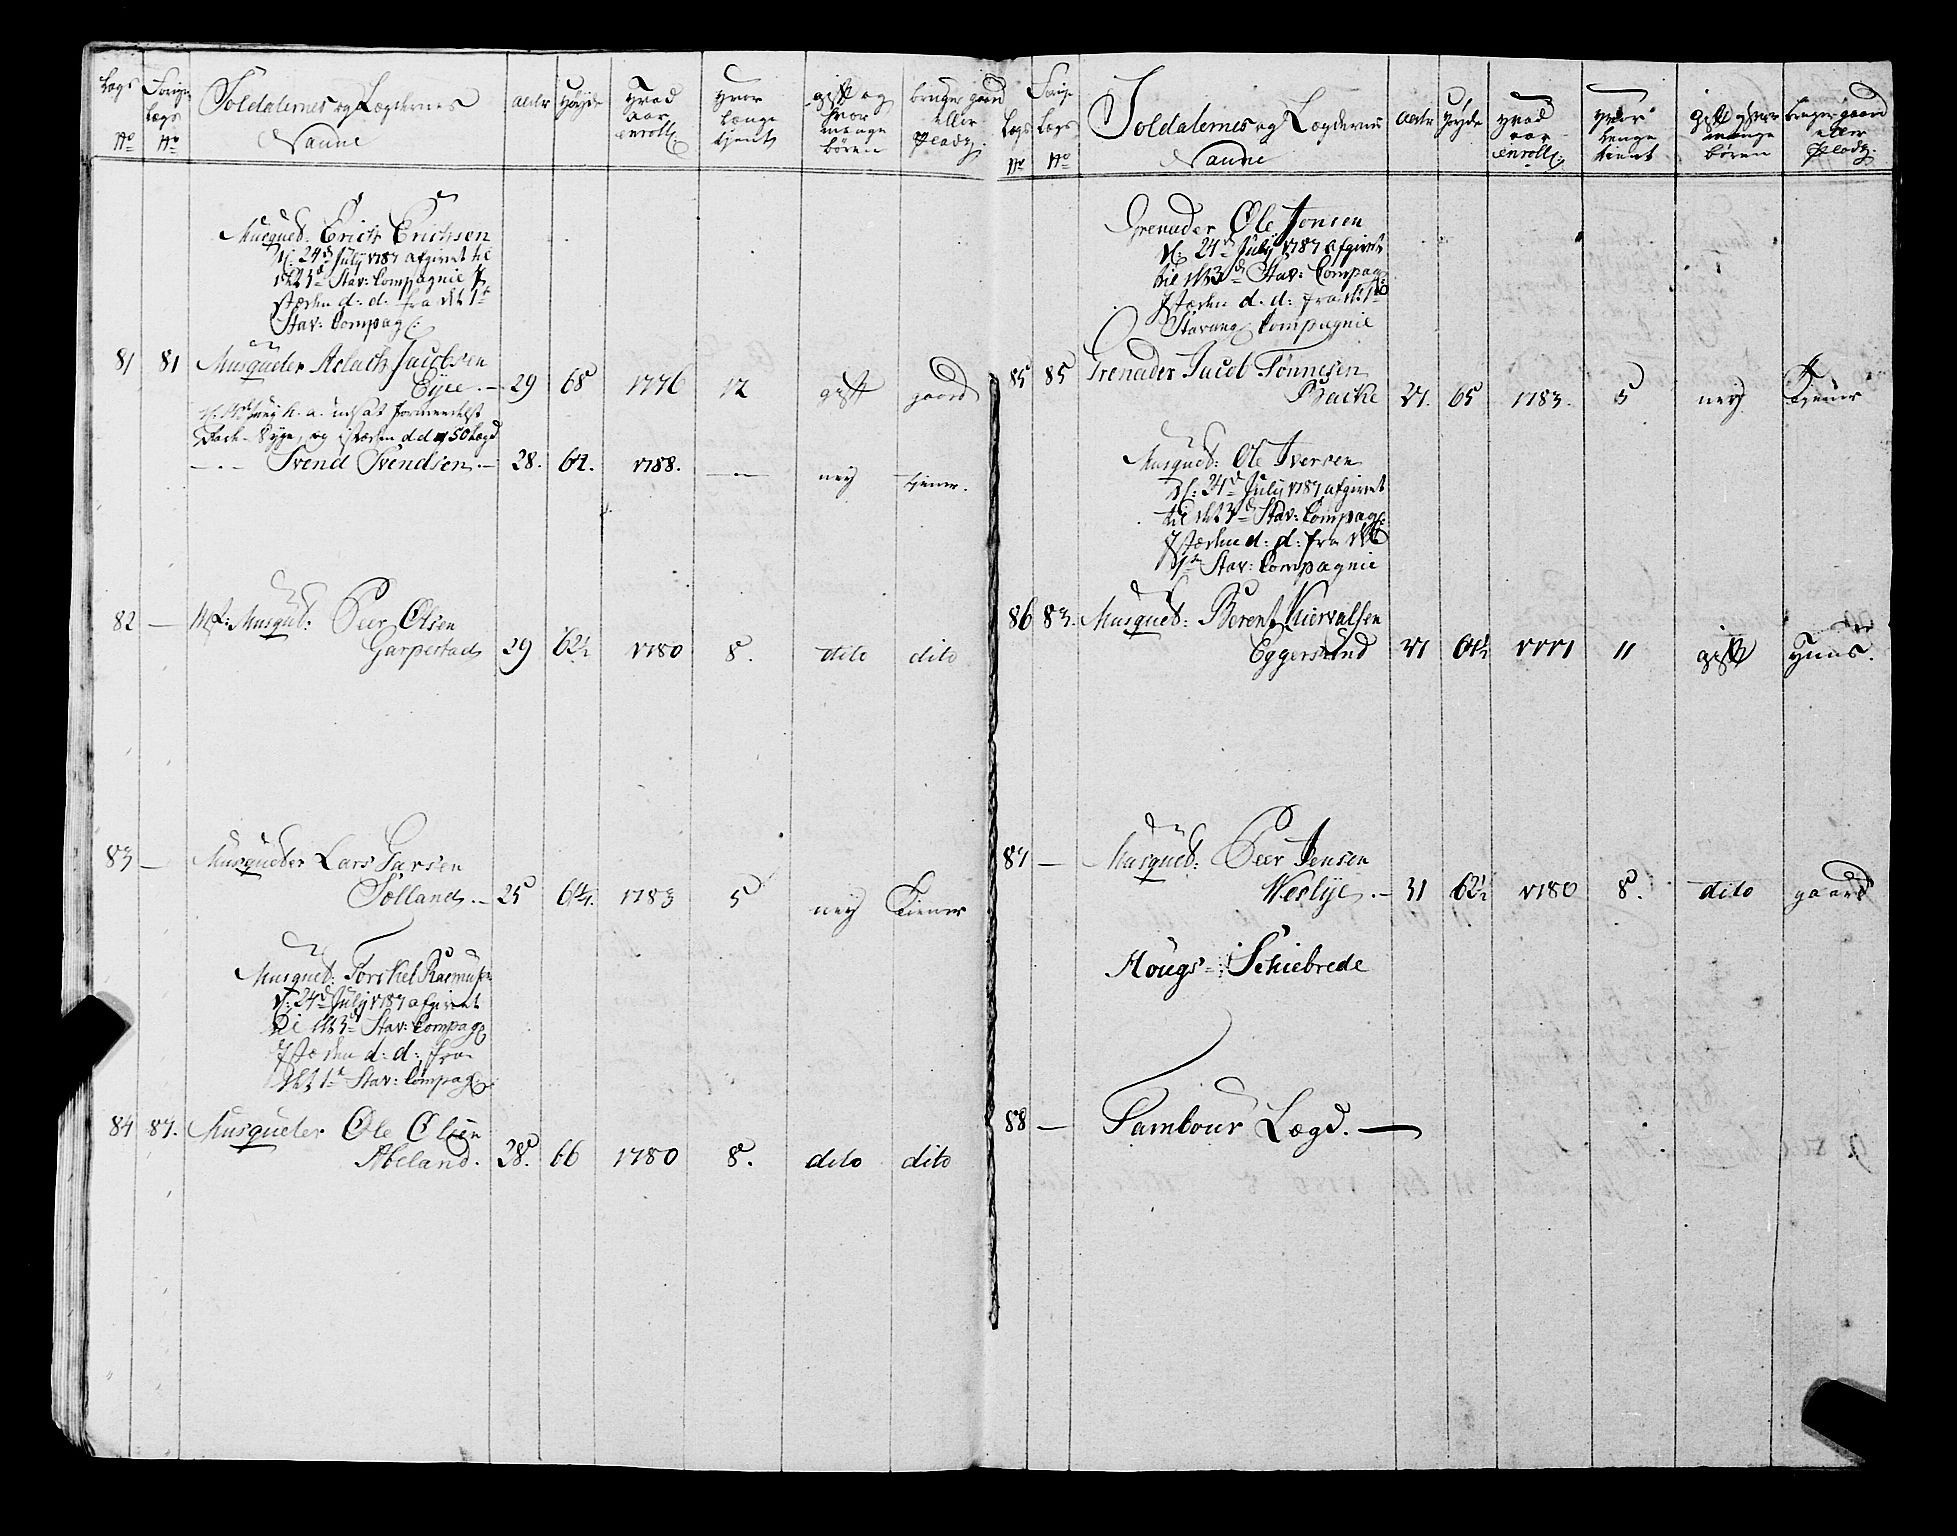 Lægs No
Forige Lægs No
Soldaternes og Lægdernes Naune
alder
Høyde
hvad aar enroll:
hvor længe tjent
gift og hvor mange børen
bruger gaard eller pladz.
Musqued: Erich Erichsen
d: 24d July 1787 afgivet til
det 3d Stav: Compagnie
istæden d: d: fra det 1te
Stav: Compag:
81 81 Musqueter Aslach Jacobsen
Eyee. — 29 68 1776 12 gift gaard
50 Lægd
— Svend Svendsen. — 28. 64. 1788. — ney tiener.
82 — Musqued: Peer Olsen
Garpestad 29 62½ 1780 8. dito dito
83 — Musqueter Lars Larsen
Sølland. — 25 64½. 1783 5 ney Tiener
Musqued: Torskel Rasmuss:
d: 24d July 1787 afgivet
til det 3d Stav: Compag:
istæden d: d: fra
det 1te Stav: Compag:
84 87. Musqueter Ole Olsen
Abeland. 28. 66 1780 8. dito dito
Lægs No
Forige Lægs No
Soldaternes og Lægdernes Naune
alder
Høyde
hvad aar enroll:
hvor lenge tient
gift og hvor mange børen
bruger gaard eller pladz.
Grenader Ole Jonsen
d: 24d July 1787 afgivet
til det 3d Stav: Compag:
istæden d. d: fra det 1te
Stavang: Compagnie
85 85 Grenader Jacob Tønnesen
Backe 27. 65 1783. 5 ney Tiener
Musqued: Ole Iversen
d: 24d July 1787 afgivet
til det 3d Stav: Compag:
istæden d: d: fra det
1te Stav: Compagnie
86 83. Musqued: Berent Kiervalsen
Eggersund 37 64½ 1777 11 gift Huus.
87 — Musqued: Peer Jensen
Neslye. — 31 62½ 1780 8. dito gaard
Hougs Schiebrede
88 — Tambour Lægd. —